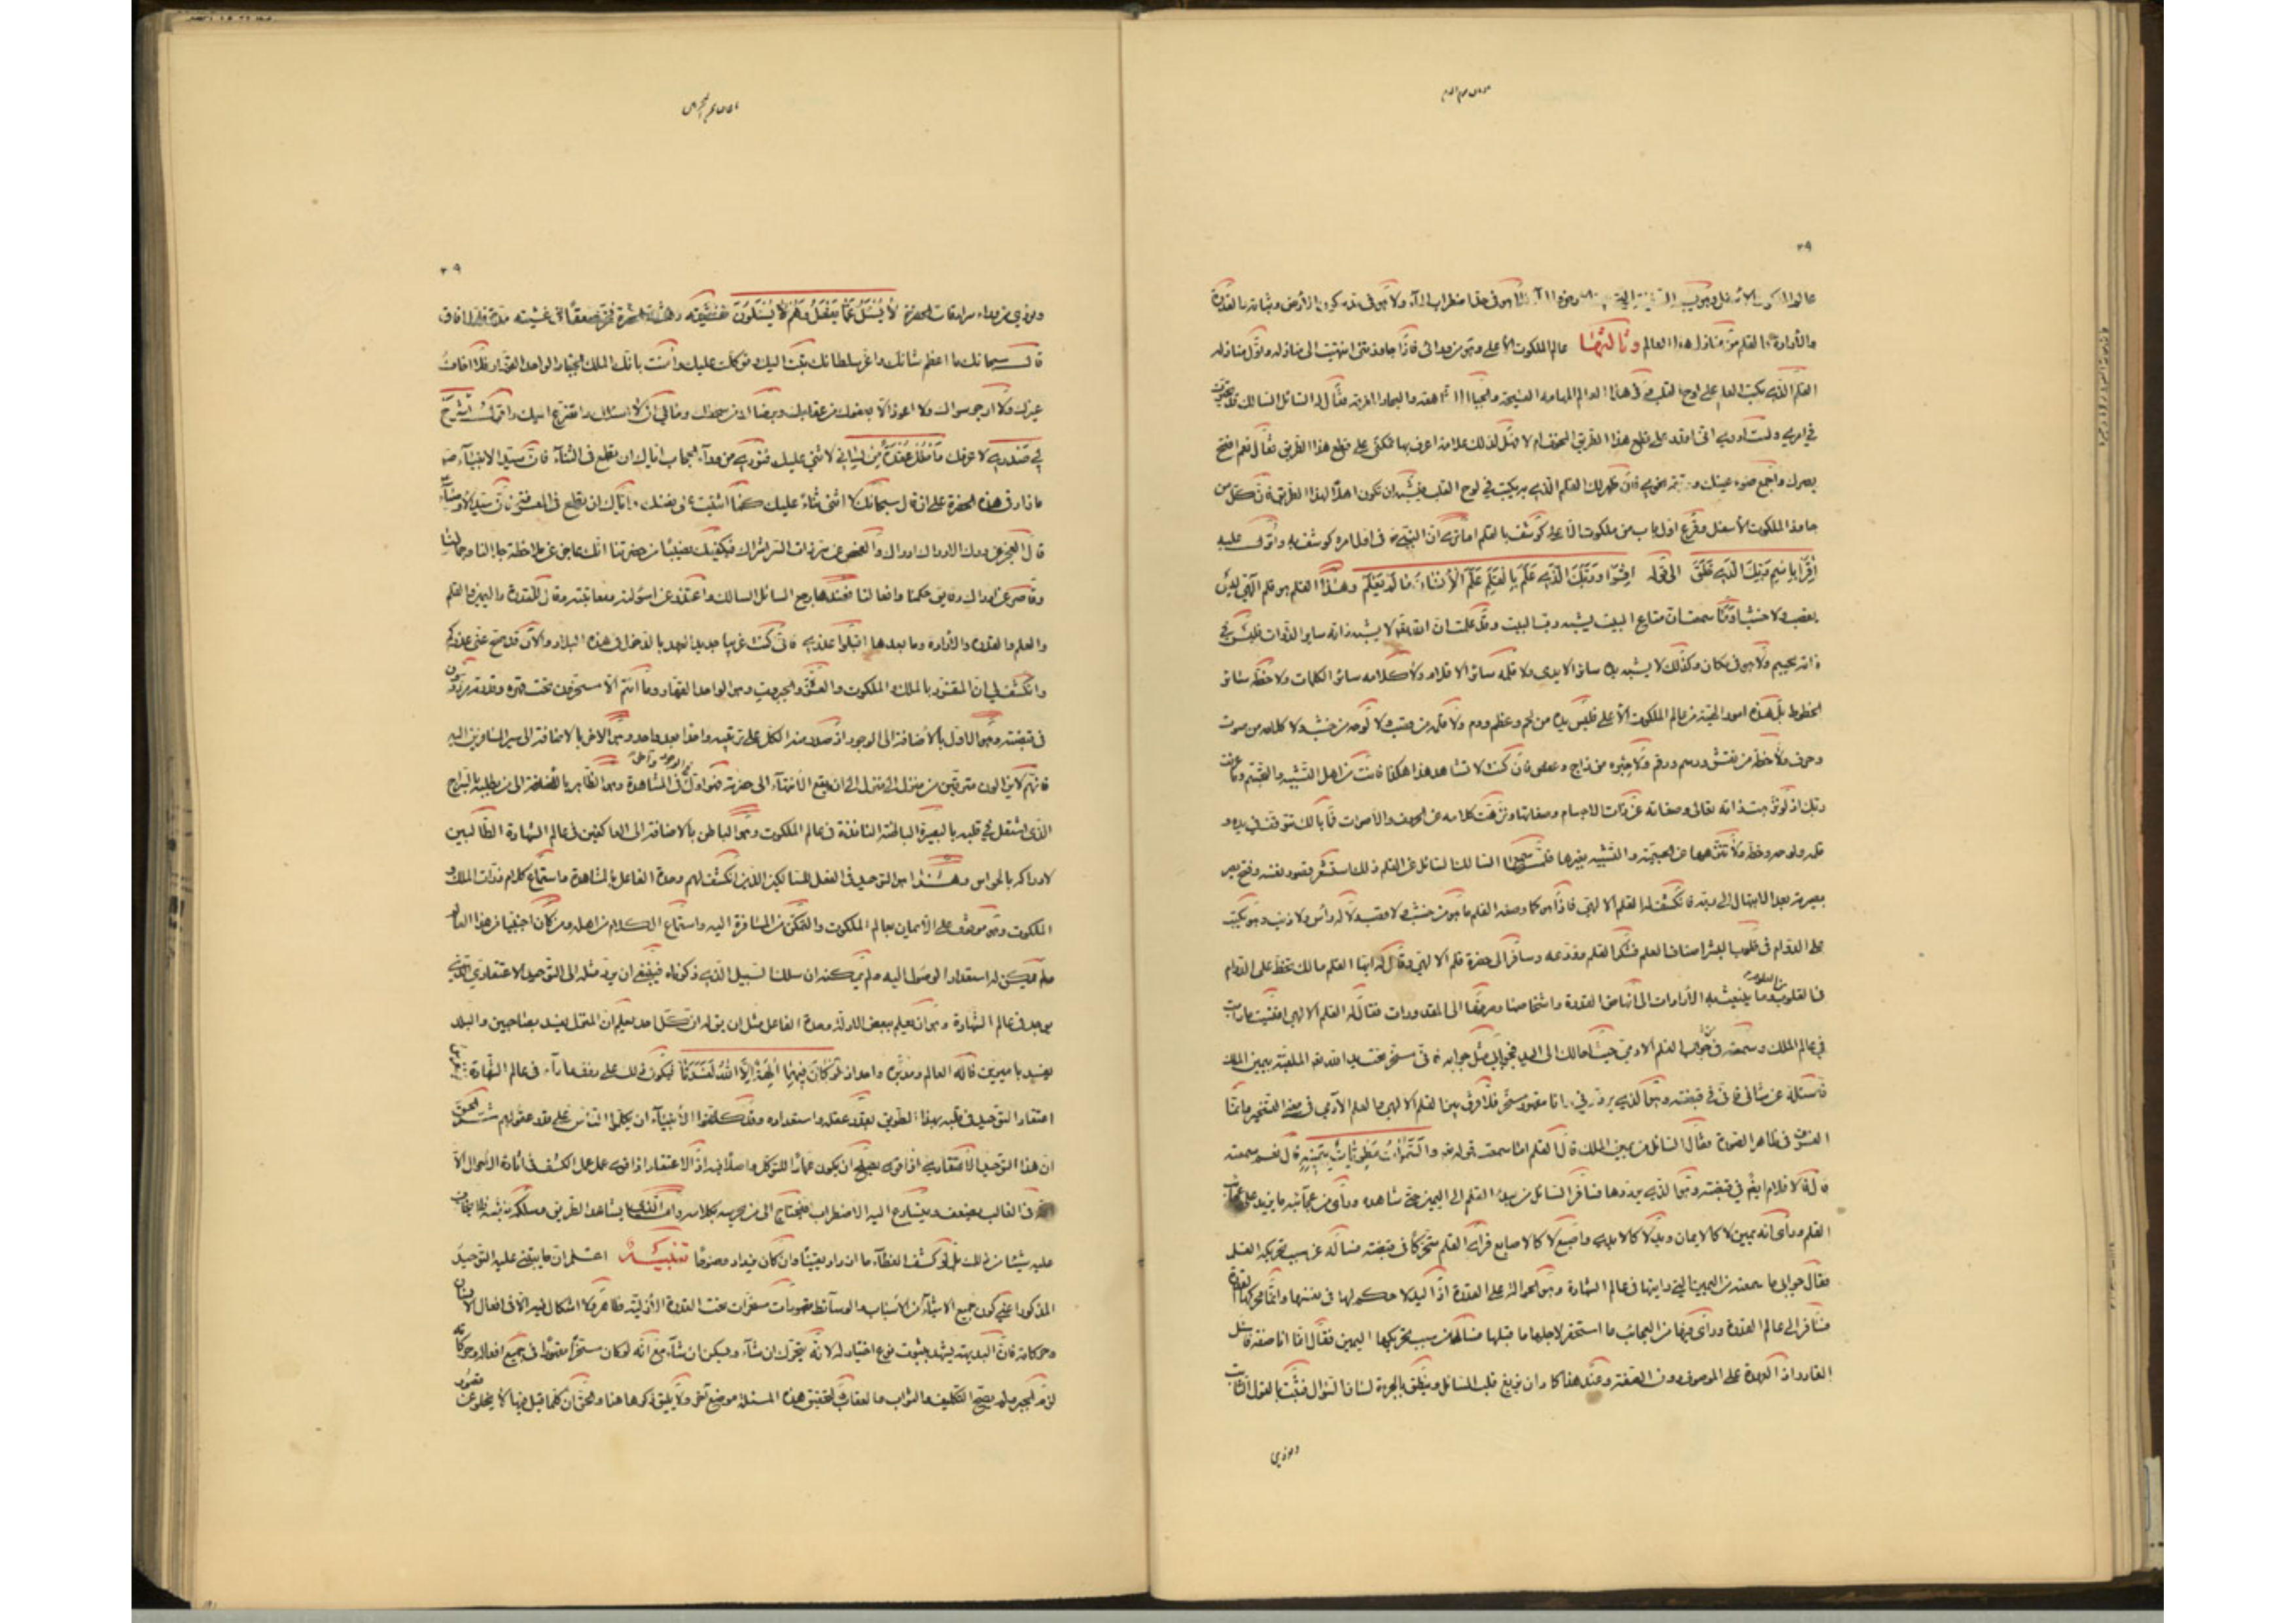 ٣٩
والارادة القلم من منازل هذا العالم وثالثها عالم الملكوت الاعلى وهو من ورائى فاذا جاوزتنى انتهيت الى منازله واول منازله
القلم الذى يكتب العلم على لوح القلب وفى هذا العالم المهامه الفسيحة والجبال الشاهقة والبحار المغرقة فقال له السائل السالك قد تحيرت
فى امرى ولست ادرى انى اقدر على قطع هذا الطريق المخوف ام لا فهل لذلك علامة اعرف بها تمكنى على قطع هذا الطريق فقال نعم افتح
بصرك واجمع ضوء عينك فان ظهر لك القلم الذى به يكتب فى لوح القلب فيشبه ان تكون اهلا لهذا الطريق فان كل من
جاوز الملكوت الاسفل وقرع اول باب من ملكوت الاعلى كوشف بالقلم اما ترى ان النبى ص فى اول امره كوشف به وانزل عليه
اقرأ باسم ربك الذى خلق الى قوله اقرأ وربك الذى علم بالقلم علم الانسان ما لم يعلم وهذا القلم هو قلم الهى ليس
بقصب ولا خشب او ما سمعت ان متاع البيت يشبه رب البيت وقد علمت ان الله تعالى لا يشبه ذاته سائر الذوات فليس فى
ذاته بجسم ولا هو فى مكان وكذلك لا يشبه يده سائر الايدى ولا قلمه سائر الاقلام ولا كلامه سائر الكلمات ولا خطه سائر
الخطوط بل هذه امور الهية من عالم الملكوت الاعلى فليس يده من لحم وعظم ودم ولا قلمه من قصب ولا لوحه من خشب ولا كلامه من صوت
وحرف ولا خطه من نقش ورسم ورقم ولا حبره من زاج وعفص فان كنت لا تشاهد هذا هكذا فانت من اهل التشبيه والتجسم وما عرفت
ربك اذ لو نزهت ذاته تعالى وصفاته عن ذات الاجسام وصفاتها ونزهت كلامه عن الحروف والاصوات فما بالك تتوقف فى يده و
قلمه ولوحه وخطه ولا تنزهها عن الجسمية والتشبيه بغيرها فلما سمع السالك السائل عن القلم ذلك استشعر قصور نفسه وفتح بصر
بصيرته بعد الابتهال الى ربه فانكشف له القلم الالهى فاذا هو كما وصفه القلم ما هو من خشب ولا قصب ولا له رأس ولا ذنب وهو يكتب
على الدوام فى قلوب البشر اصناف العلم فشكر القلم وودعه وسافر الى حضرة قلم الالهى وقال له ايها القلم مالك تخط على الدوام
من العلوم
فى القلوب ما ينبعث به الارادات الى انهاض القدرة واشخاصها وصرفها الى المقدورات فقال له القلم الالهى افنسيت ما رأيت
فى عالم الملك وسمعته فى جواب القلم الادمى حيث احالك الى اليد فجوابى مثل جوابه فانى مسخر تحت يد الله تعالى الملقبة بيمين الملك
فاسئله عن شأنى فانى فى قبضته وهو الذى يرددنى وانا مقهور مسخر فلا فرق بين القلم الالهى والقلم الآدمى فى معنى التسخير وانما
الفرق فى ظاهر الصورة فقال السائل من يمين الملك قال القلم اما سمعت قوله تعالى والسموات مطويات بيمينه قال نعم سمعته
قال فالاقلام ايضا فى قبضته وهو الذى يرددها فسافر السائل من عند القلم الى اليمين حتى شاهده ورأى من عجائبه ما يزيد على عجائب
القلم ورأى انه يمين لا كالايمان ويد لا كالايدى واصبع لا كالاصابع فرأى القلم متحركا فى قبضته فسأله عن سبب تحريكه القلم
فقال جوابى ما سمعته من اليمين التى رايتها فى عالم الشهادة وهو الحوالة على القدرة اذ اليد لا حكم لها فى نفسها وانما محركها القدرة
فسافر الى عالم القدرة ورأى فيها من العجائب ما استحقر لاجلها ما قبلها فسألها عن سبب تحريكها اليمين فقال انما انا صفة فاسئل
القادر اذ العهدة على الموصوف دون الصفة وعند هذا كاد ان يزيغ قلب السائل وينطلق بالجرأة لسان السؤال فثبت بالقول الثابت
ونودى
٣٩
ونودى من وراء سرادقات الحضرة لا يسئل عما يفعل وهم يسئلون فغشيته دهشة الحضرة فخر صعقا فى غشيته مدة فلما افاق
قال سبحانك ما اعظم شانك واعز سلطانك تبت اليك وتوكلت عليك وآمنت بانك الملك الجبار الواحد القهار فلا اخاف
غيرك ولا ارجو سواك ولا اعوذ الا بعفوك من عقابك وبرضاك من سخطك ومالى ان لا اسئلك واتضرع اليك واقول اشرح
لى صدرى لاعرفك واحلل عقدة من لسانى لاثنى عليك فنودى من وراء الحجاب اياك ان تطمع فى الثناء فان سيد الانبياء ص
ما زاد فى هذه الحضرة على ان قال سبحانك لا احصى ثناء عليك كما اثنيت على نفسك واياك ان تطمع فى المعرفة فان سيد الاوصياء
قال العجز عن درك الادراك ادراك والفحص عن سر ذات السر اشراك فيكفيك نصيبا من حضرتنا انك عاجز عن ملاحظة جمالنا وجلالنا
وقاصر عن ادراك دقايق حكمنا وافعالنا فعندها رجع السائل السالك واعتذر عن اسئولته ومعاتبته وقال للقدرة واليمين والقلم
والعلم والقدرة والارادة وما بعدها اقبلوا عذرى فانى كنت غريبا جديد العهد بالدخول فى هذه البلاد والآن قد صح عندى عذركم
وانكشف لى ان المتفرد بالملك والملكوت والعز والجبروت وهو الواحد القهار وما انتم الا مسخرون تحت قهره وقدرته مرددون
فى قبضته وهو الاول بالاضافة الى الوجود اذ صدر منه الكل على ترتيبه واحدا بعد واحد وهو الاخر بالاضافة الى سير السائرين اليه
فانهم لا يزالون مترقين من منزل الى منزل الى ان يقع الانتهاء الى حضرته فهو اول فى المشاهدة وهو الظاهر بالاضافة الى من يطلبه بالسراج
الذى اشتعل فى قلبه بالبصيرة الباطنة النافذة فى عالم الملكوت وهو الباطن بالاضافة الى العاكفين فى عالم الشهادة الطالبين
لادراكه بالحواس وهذا هو التوحيد فى الفعل للسالكين الذين انكشف لهم وحدة الفاعل بالمشاهدة واستماع كلام ذرات الملك و
الملكوت وهو موقوف على الايمان بعالم الملكوت والتمكن من المسافرة اليه واستماع الكلام من اهله ومن كان اجنبيا من هذا العالم
ولم يكن له استعداد الوصول اليه ولم يمكنه ان يسلك السبيل الذى ذكرناه فينبغى ان يرد مثله الى التوحيد الاعتقادى الذى
يوجد فى عالم الشهادة وهو ان يعلم ببعض الادلة وحدة الفاعل مثل ان يقال له ان كل احد يعلم ان المنزل يفسد بصاحبين والبلد
يفسد باميرين فاله العالم ومدبره واحد اذ لو كان فيهما الهة الا الله لفسدتا فيكون ذلك على وفق ما رآه فى عالم الشهادة
اعتقاد التوحيد فى قلبه بهذا الطريق بقدر عقله واستعداده وقد كلفوا الانبياء ان يكلموا الناس على قدر عقولهم ثم الحق
ان هذا التوحيد الاعتقادى اذا قوى يصلح ان يكون عمادا للتوكل واصلا فيه اذ الاعتقاد اذا قوى عمل عمل الكشف فى اثارة الاحوال الا
انه فى الغالب يضعف ويتسارع اليه الاضطراب فيحتاج الى من يحرسه بكلامه واما الذى شاهد الطريق وسلكه بنفسه فلا يخاف
عليه شيئا من ذلك بل لو كشف الغطاء ما ازداد يقينا وان كان يزداد وضوحا تنبيه اعلم ان ما يبتنى عليه التوحيد
المذكور اعنى كون جميع الاشياء من الاسباب والوسائط مقهورات مسخرات تحت القدرة الازلية ظاهر لا اشكال فيه الا فى افعال الانسان
وحركاته فان البديهة يشهد بثبوت نوع اختيار له لانه يتحرك ان شاء ويسكن ان شاء مع انه لو كان مسخرا مقهورا فى جميع افعاله وحركاته
لزم الجبر ولم يصح التكليف والثواب والعقاب لتحقيق هذه المسئلة موضع آخر ولا يليق ذكرها هنا والحق ان كلما قيل فيها لا يخلو عن قصور